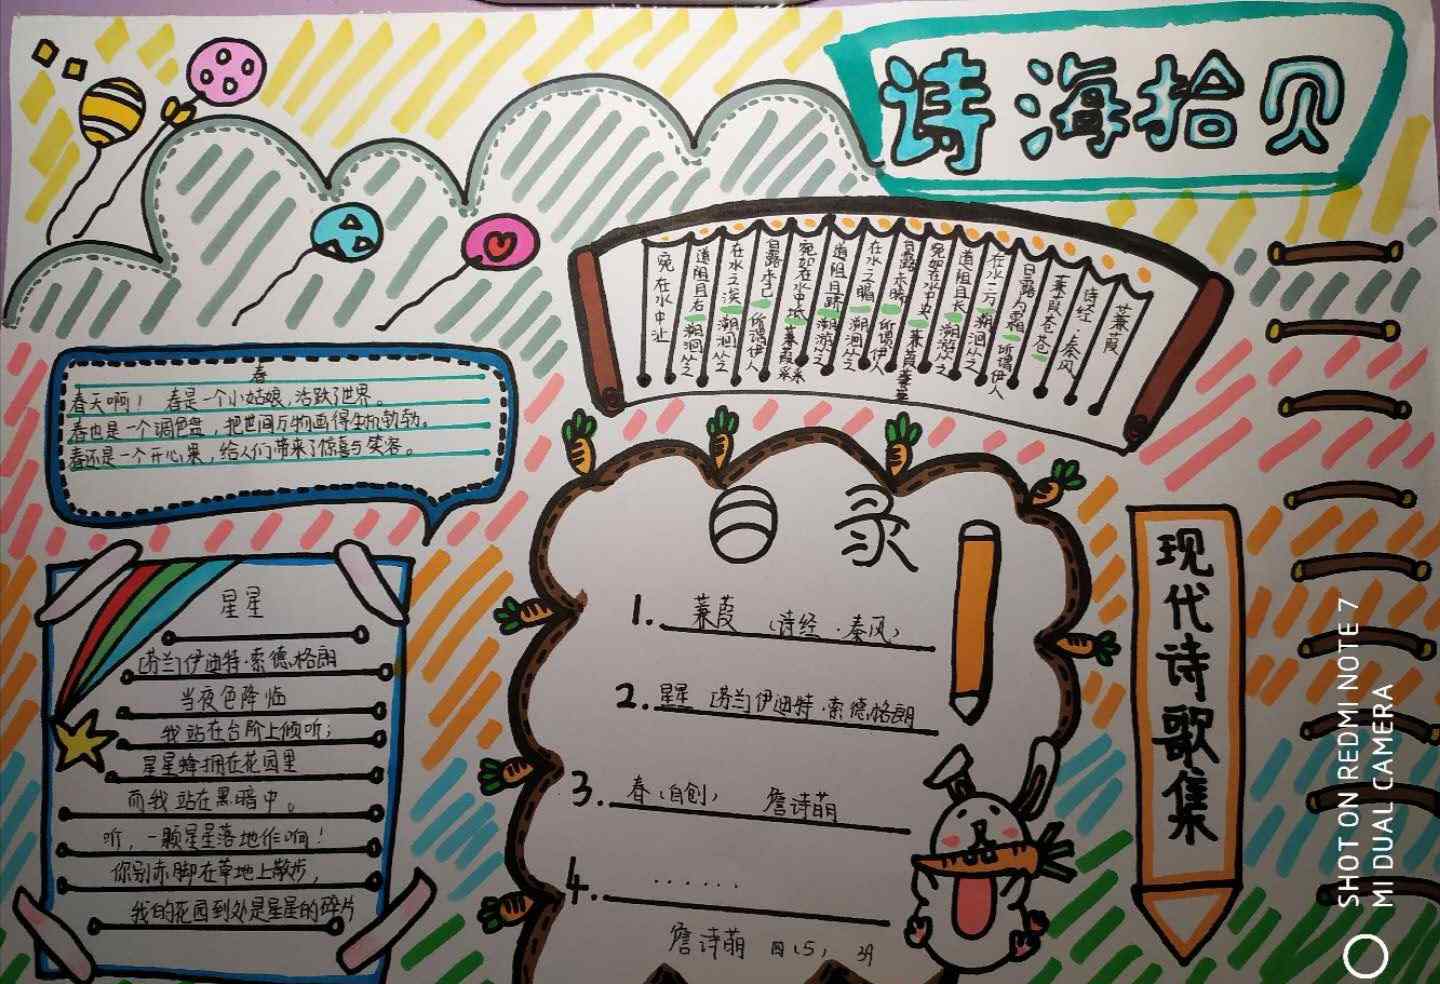 诗海拾贝
蒹葭
诗经·秦风
蒹葭苍苍
白露为霜 所谓伊人
在水一方 溯洄从之
道阻且长 溯游从之
宛如在水中央 蒹葭萋萋
白露未晞 所谓伊人
在水之湄 溯洄从之
道阻且跻 溯游从之
宛如在水中坻 蒹葭采采
白露未已 所谓伊人
在水之涘 溯洄从之
道阻且右 溯洄从之
宛在水中沚
春
春天啊! 春是一个小姑娘,活跃了世界。
春也是一个调色盘,把世间万物画得生机勃勃。
春还是一个开心果,给人们带来了惊喜与笑容。
星星
[芬兰]伊迪特·索德格朗
当夜色降临
我站在台阶上倾听;
星星蜂拥在花园里
而我站在黑暗中。
听,一颗星星落地作响!
你别赤脚在草地上散步,
我的花园到处是星星的碎片
目录
1. 蒹葭 (诗经·秦风)
2. 星星 [芬兰]伊迪特·索德格朗
3. 春(自创) 詹诗萌
4. ......
詹诗萌 四(5) 39
现代诗歌集
SHOT ON REDMI NOTE 7
MI DUAL CAMERA